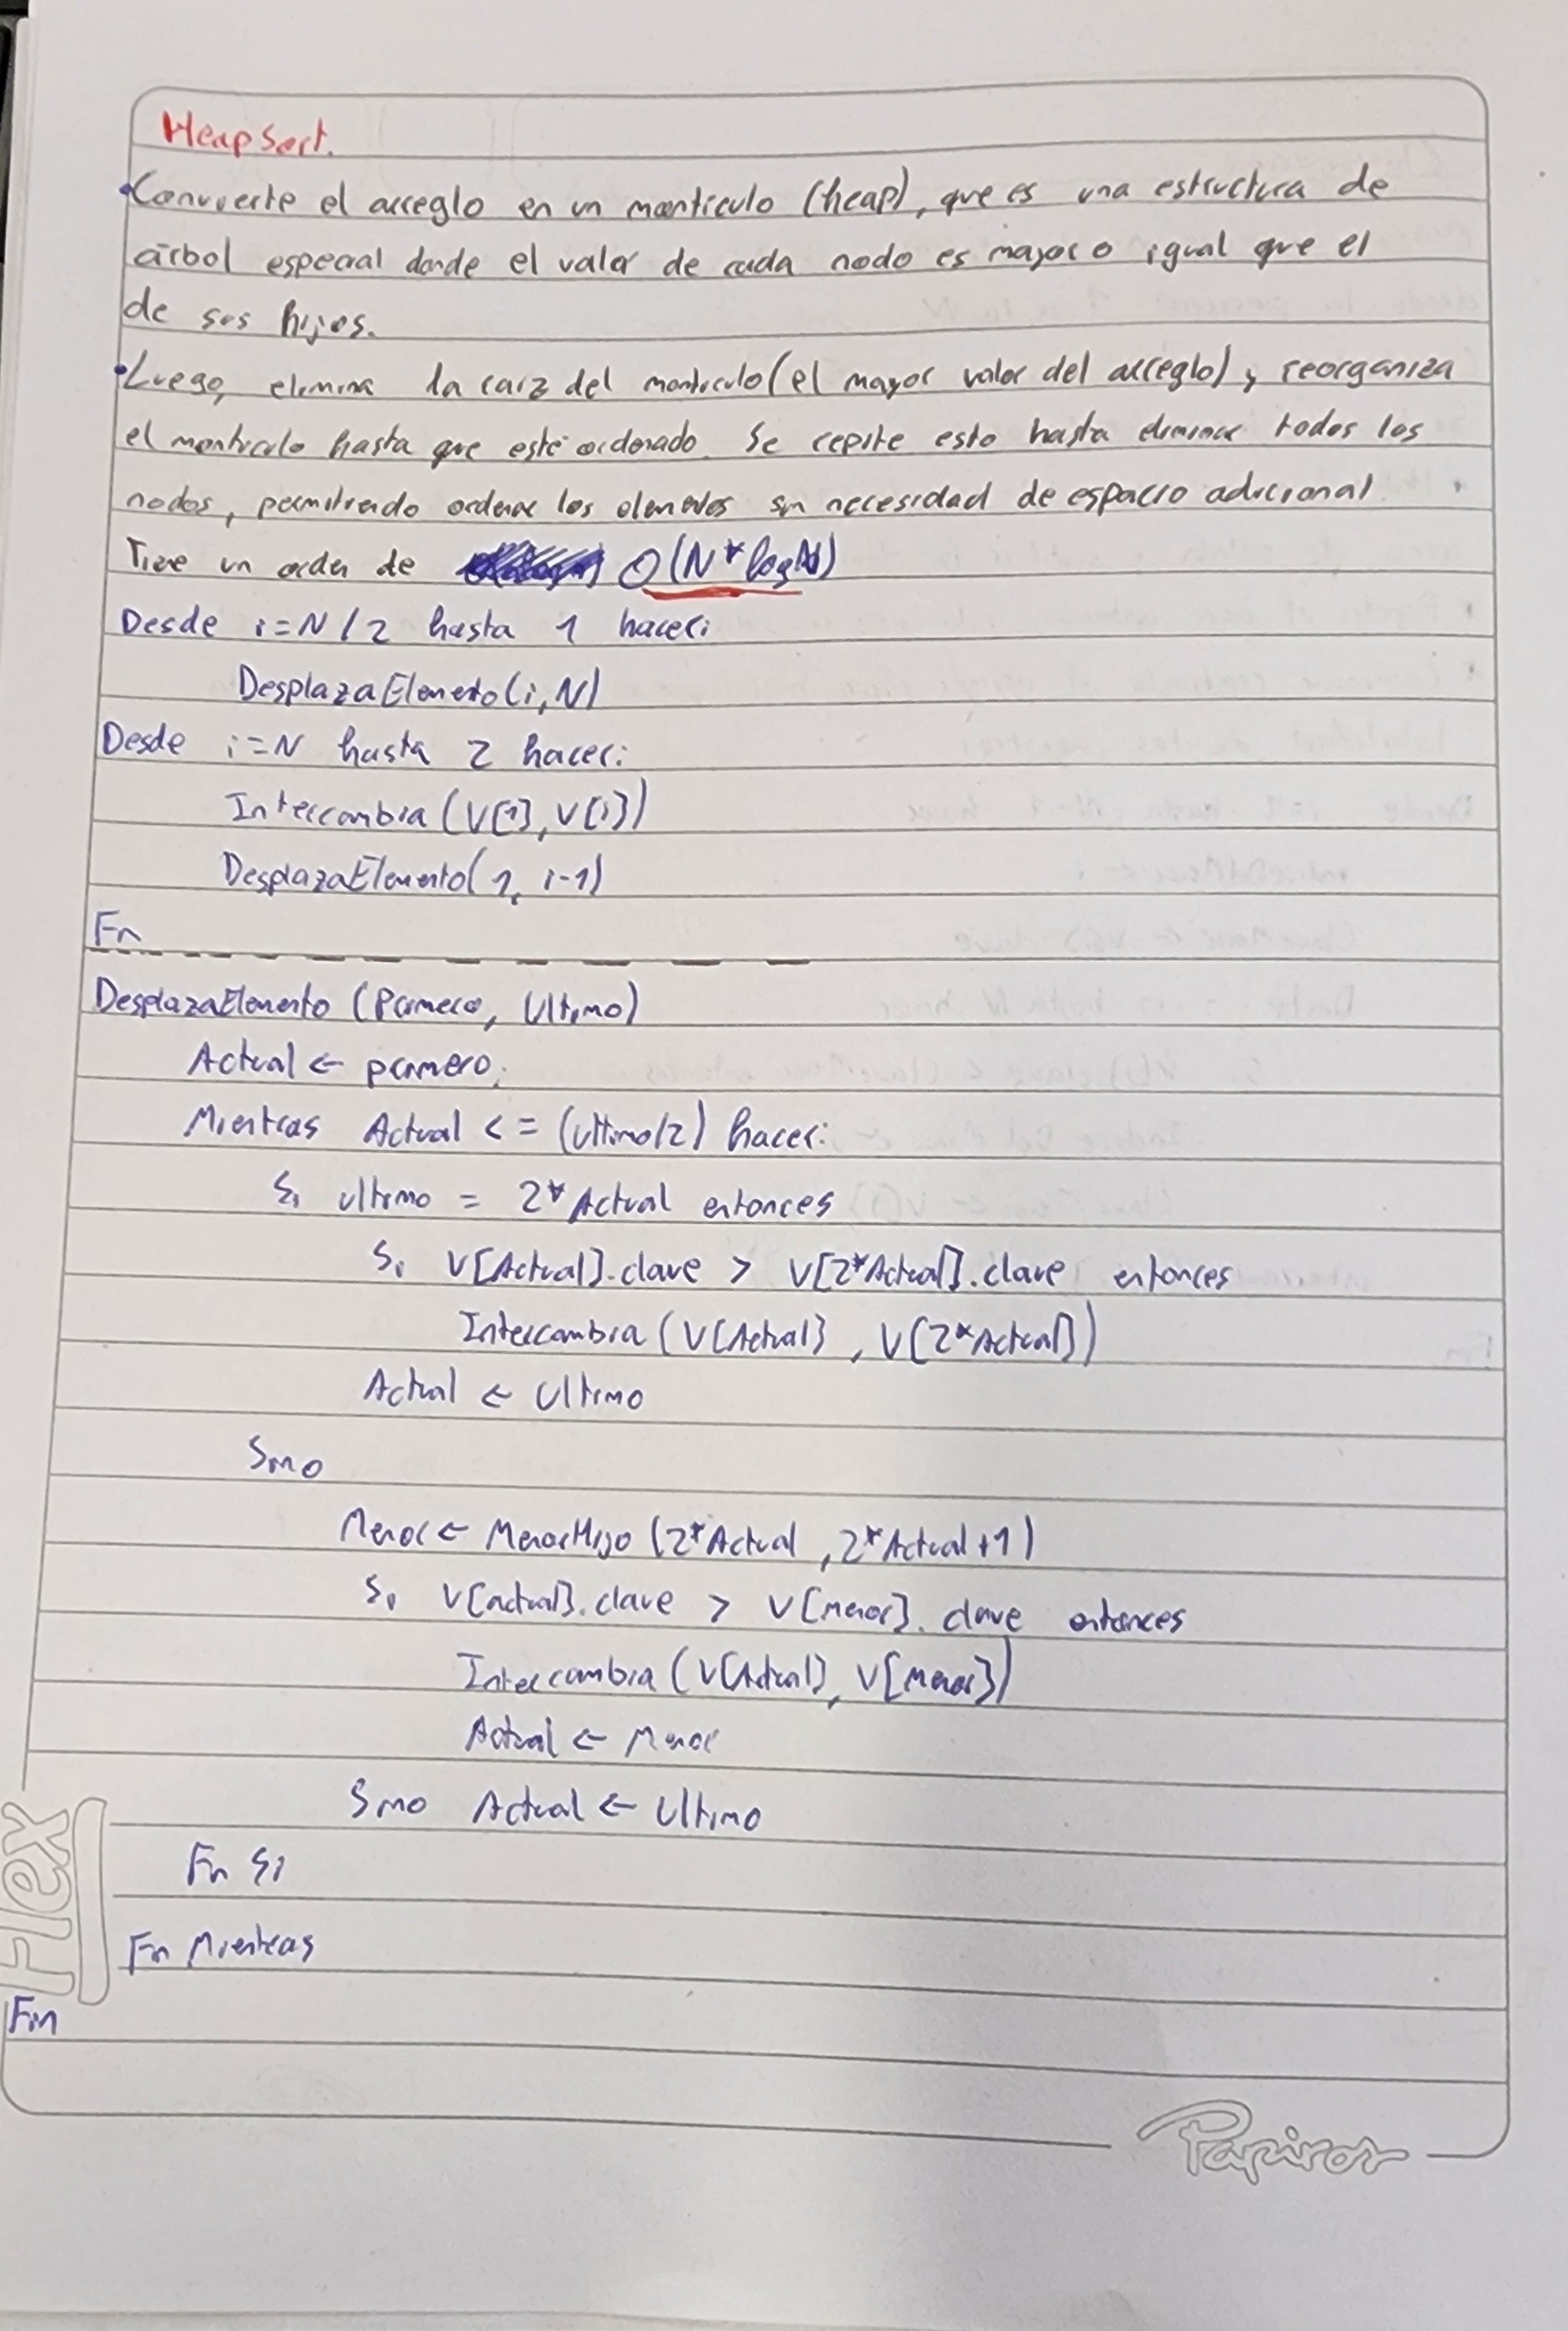 HeapSort.
•Convierte el arreglo en un montículo (heap), que es una estructura de
árbol especial donde el valor de cada nodo es mayor o igual que el
de sus hijos.
•Luego, elimina la raiz del monticulo (el mayor valor del arreglo) y reorganiza
el monticulo hasta que esté ordenado. Se repite esto hasta eliminar todos los
nodos, permitiendo ordenar los elementos sin necesidad de espacio adicional
Tiene un orden de O(N*logN)
Desde i=N/2 hasta 1 hacer:
DesplazaElemento(i,N)
Desde i=N hasta 2 hacer:
Intercambia(V[1],V[i])
DesplazaElemento(1, i-1)
Fin
DesplazaElemento (Primero, Ultimo)
Actual ← primero;
Mientras Actual <= (ultimo/2) hacer:
Si ultimo = 2*Actual entonces
Si V[Actual].clave > V[2*Actual].clave entonces
Intercambia (V[Actual], V[2*Actual])
Actual ← Ultimo
Sino
Menor ← MenorHijo (2*Actual, 2*Actual+1)
Si V[actual].clave > V[menor].clave entonces
Intercambia (V[Actual], V[Menor])
Actual ← Menor
Sino Actual ← Ultimo
Fin Si
Fin Mientras
Fin
Flex
Papiros